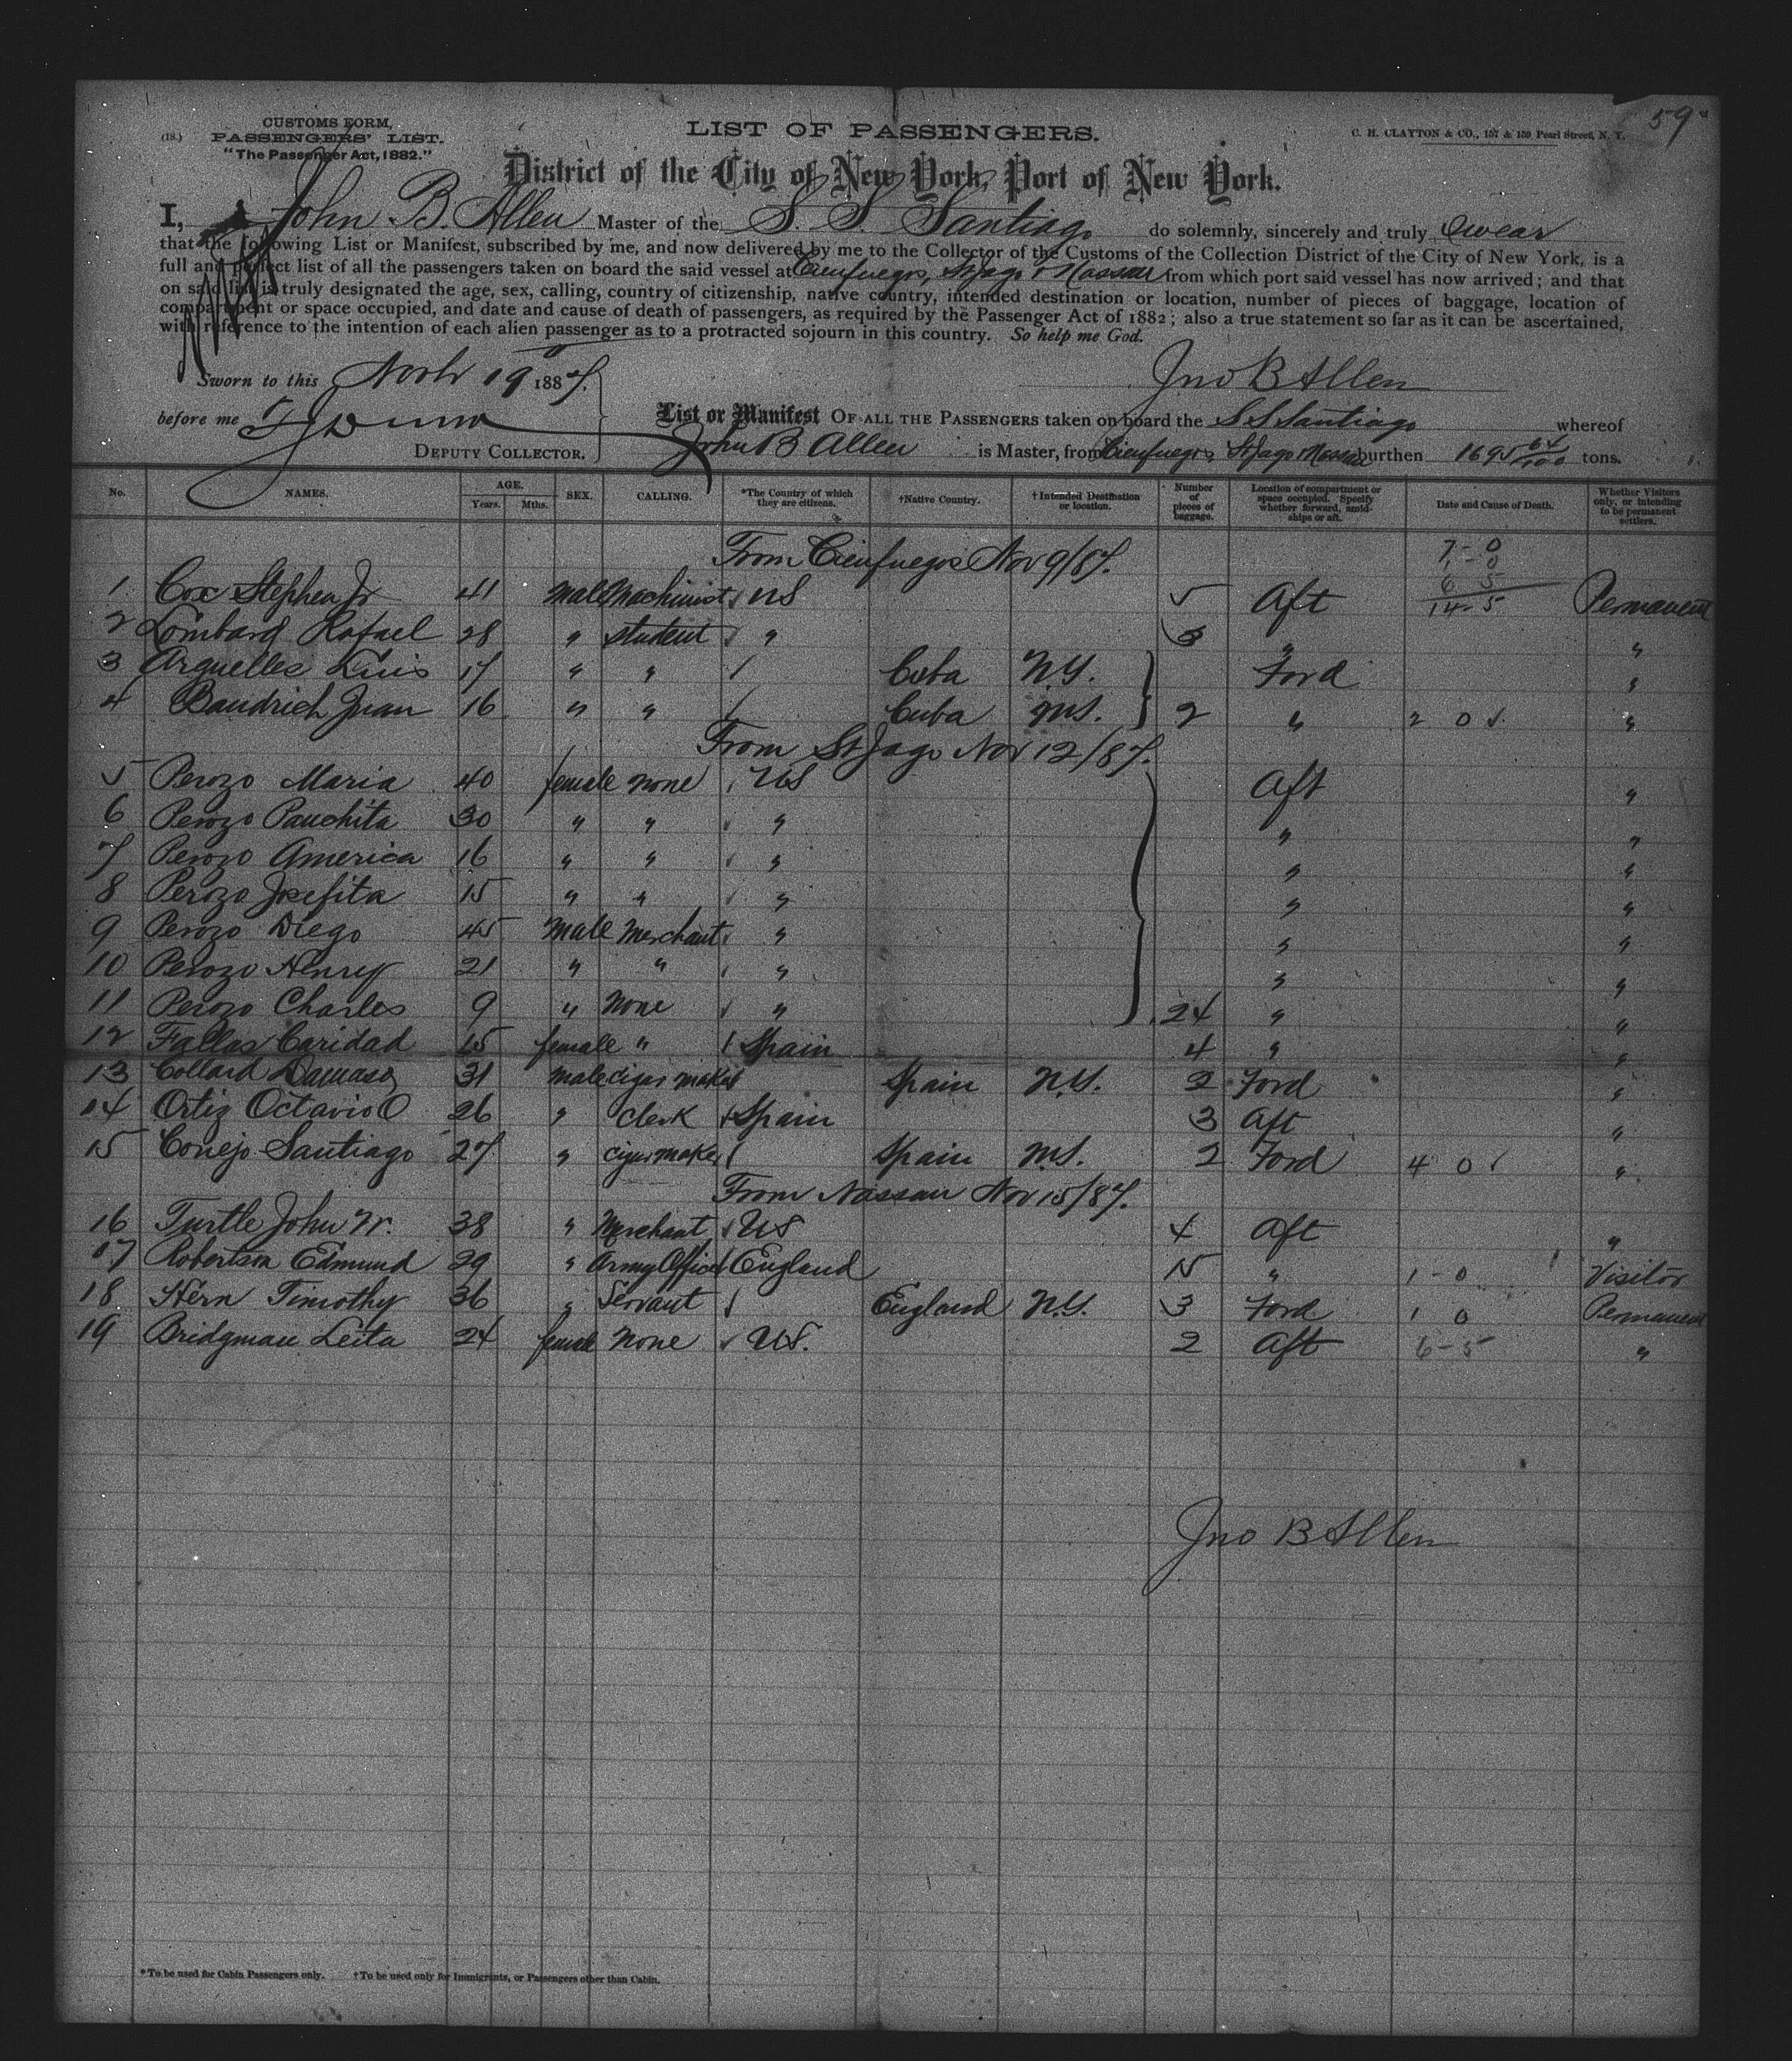 59
(18.)
CUSTOMS FORM,
PASSENGERS' LIST.
"The Passenger Act, 1882."
LIST OF PASSENGERS.
C. H. CLAYTON & CO., 157 & 159 Pearl Street, N. Y.
District of the City of New York, Port of New York.
I, John B. Allen Master of the S. S. Santiago do solemnly, sincerely and truly swear
that the following List or Manifest, subscribed by me, and now delivered by me to the Collector of the Customs of the Collection District of the City of New York, is a
full and perfect list of all the passengers taken on board the said vessel at Cienfuegos, St Jago & Nassau from which port said vessel has now arrived; and that
on said list is truly designated the age, sex, calling, country of citizenship, native country, intended destination or location, number of pieces of baggage, location of
compartment or space occupied, and date and cause of death of passengers, as required by the Passenger Act of 1882; also a true statement so far as it can be ascertained,
with reference to the intention of each alien passenger as to a protracted sojourn in this country. So help me God.
Sworn to this Novbr 19 1887.
Jno B Allen
before me
DEPUTY COLLECTOR.
List or Manifest OF ALL THE PASSENGERS taken on board the S S Santiago whereof
John B Allen is Master, from Cienfuegos, St Jago Nassau burthen 1695 64/100 tons.
No. NAMES. AGE. Years. Mths. SEX. CALLING. *The Country of which they are citizens. †Native Country. †Intended Destination or location. Number of pieces of baggage. Location of compartment or space occupied. Specify whether forward, amidships or aft. Date and Cause of Death. Whether Visitors only, or intending to be permanent settlers.
From Cienfuegos Nov 9/87.
7-0
1-0
6 5
14-5
1 Cox Stephen Jr 41 male Machinist US 5 Aft Permanent
2 Lombard Rafael 28 " student " 3 " "
3 Arguelles Luis 17 " " Cuba N.Y. Ford "
4 Baudrich Juan 16 " " Cuba N.Y. 2 " 2 0 "
From St Jago Nov 12/87.
5 Perozo Maria 40 female none US Aft "
6 Perozo Panchita 30 " " " " "
7 Perozo America 16 " " " " "
8 Perozo Josefita 15 " " " " "
9 Perozo Diego 45 male Merchant " " "
10 Perozo Henry 21 " " " " "
11 Perozo Charles 9 " none " 24 " "
12 Fallas Caridad 15 female " Spain 4 " "
13 Collard Damaso 31 male cigar maker Spain N.Y. 2 Ford "
14 Ortiz Octavio O 26 " clerk Spain 3 Aft "
15 Conejo Santiago 27 " cigar maker Spain N.Y. 2 Ford 4 0 "
From Nassau Nov 15/87.
16 Turtle John W. 38 " Merchant US 4 Aft "
17 Robertson Edmund 29 " Army Officer England 15 " 1-0 Visitor
18 Hern Timothy 36 " Servant England N.Y. 3 Ford 1 0 Permanent
19 Bridgman Leita 24 female none US. 2 Aft 6-5 "
Jno B Allen
*To be used for Cabin Passengers only. †To be used only for Immigrants, or Passengers other than Cabin.